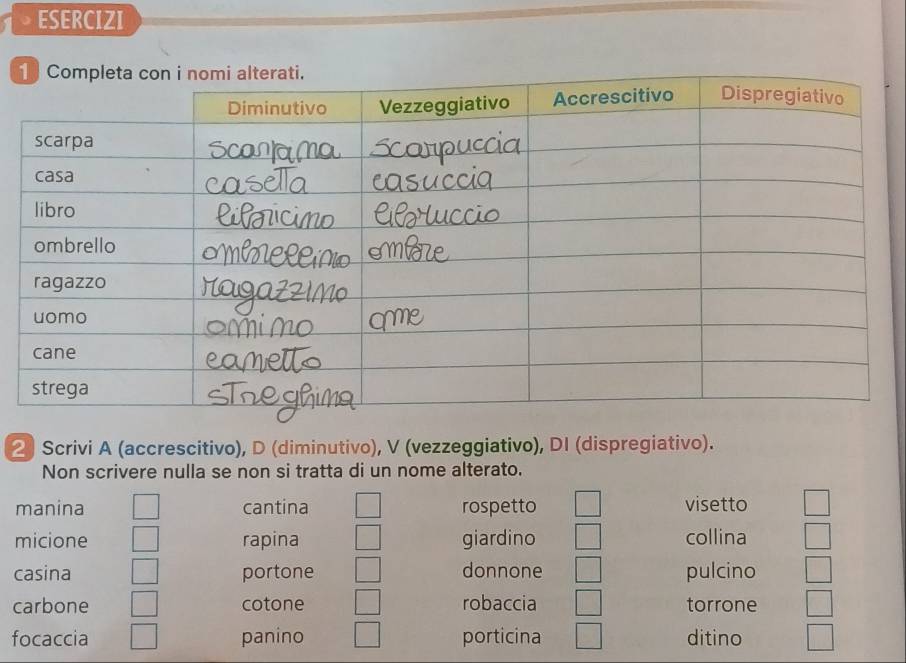 ESERCIZI
1 Completa con i nomi alterati.
Diminutivo Vezzeggiativo Accrescitivo Dispregiativo
scarpa scarpina scarpuccia
casa casetta casuccia
libro libricino libruccio
ombrello ombrellino ombre
ragazzo ragazzino
uomo omino ome
cane canetto
strega streghina
2 Scrivi A (accrescitivo), D (diminutivo), V (vezzeggiativo), DI (dispregiativo).
Non scrivere nulla se non si tratta di un nome alterato.
manina cantina rospetto visetto
micione rapina giardino collina
casina portone donnone pulcino
carbone cotone robaccia torrone
focaccia panino porticina ditino